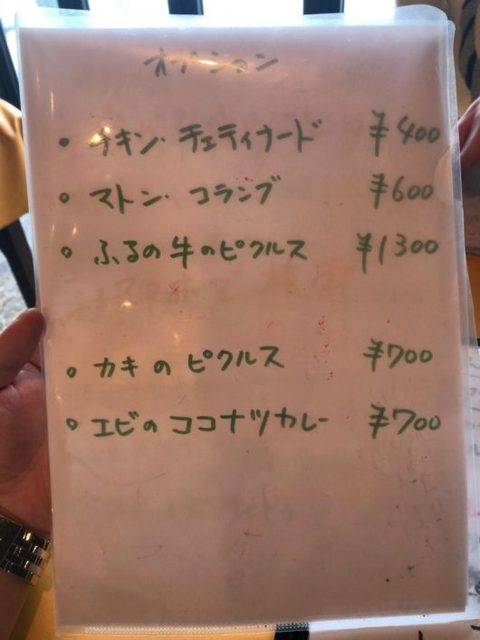 オプション
• チキン・チェティナード ¥400
• マトン・コランブ ¥600
• ふるの牛のピクルス ¥1300
• カキのピクルス ¥700
• エビのココナツカレー ¥700